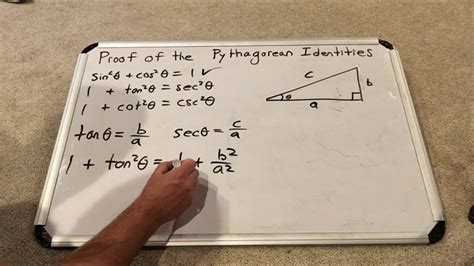 Proof of the Pythagorean Identities
sin²θ + cos²θ = 1 ✓
1 + tan²θ = sec²θ
1 + cot²θ = csc²θ
c
b
θ
a
tanθ = b/a secθ = c/a
1 + tan²θ = 1 + b²/a²